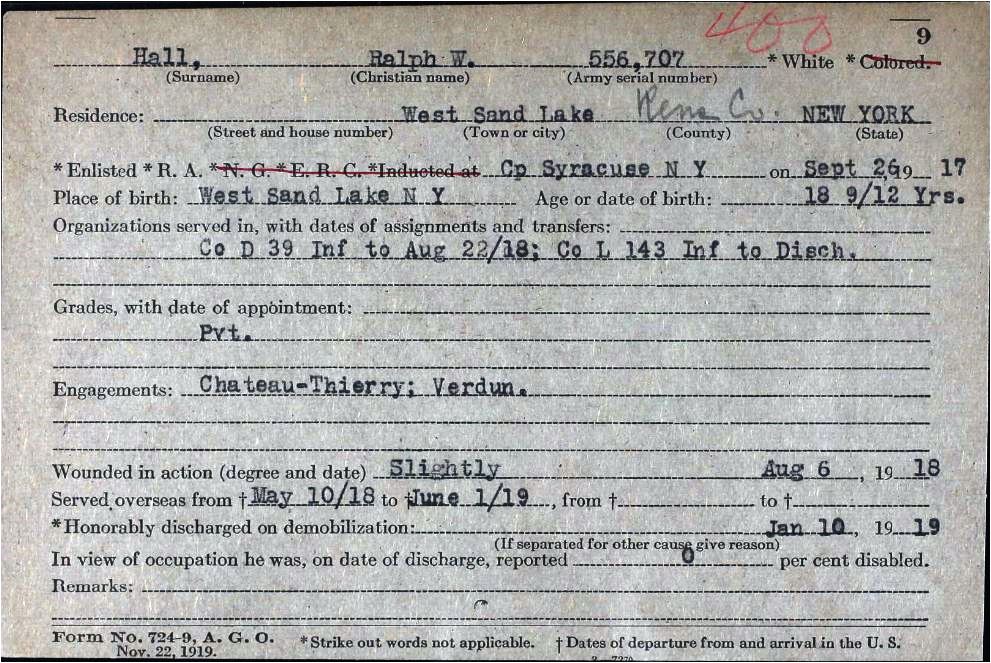 400
9
Hall, Ralph W. 556,707 * White * Colored.
(Surname) (Christian name) (Army serial number)
Residence: West Sand Lake Rens Co. NEW YORK
(Street and house number) (Town or city) (County) (State)
* Enlisted * R. A. * N. G. * E. R. C. * Inducted at Cp Syracuse N Y on Sept 26, 19 17
Place of birth: West Sand Lake N Y Age or date of birth: 18 9/12 Yrs.
Organizations served in, with dates of assignments and transfers:
Co D 39 Inf to Aug 22/18; Co L 143 Inf to Disch.
Grades, with date of appointment:
Pvt.
Engagements: Chateau-Thierry; Verdun.
Wounded in action (degree and date) Slightly Aug 6, 19 18
Served overseas from † May 10/18 to † June 1/19, from † to †
* Honorably discharged on demobilization: Jan 10, 19 19
(If separated for other cause give reason)
In view of occupation he was, on date of discharge, reported 0 per cent disabled.
Remarks:
Form No. 724-9, A. G. O. * Strike out words not applicable. † Dates of departure from and arrival in the U. S.
Nov. 22, 1919.